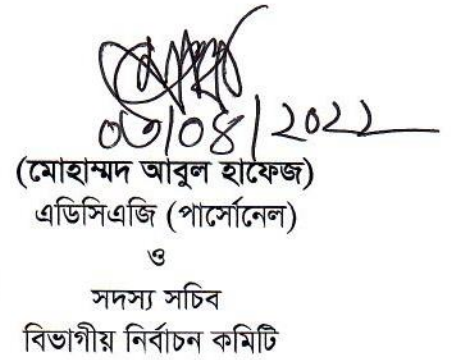 ০৩/০৪/২০২২
(মোহাম্মদ আবুল হাফেজ)
এডিসিএজি (পার্সোনেল)
ও
সদস্য সচিব
বিভাগীয় নির্বাচন কমিটি